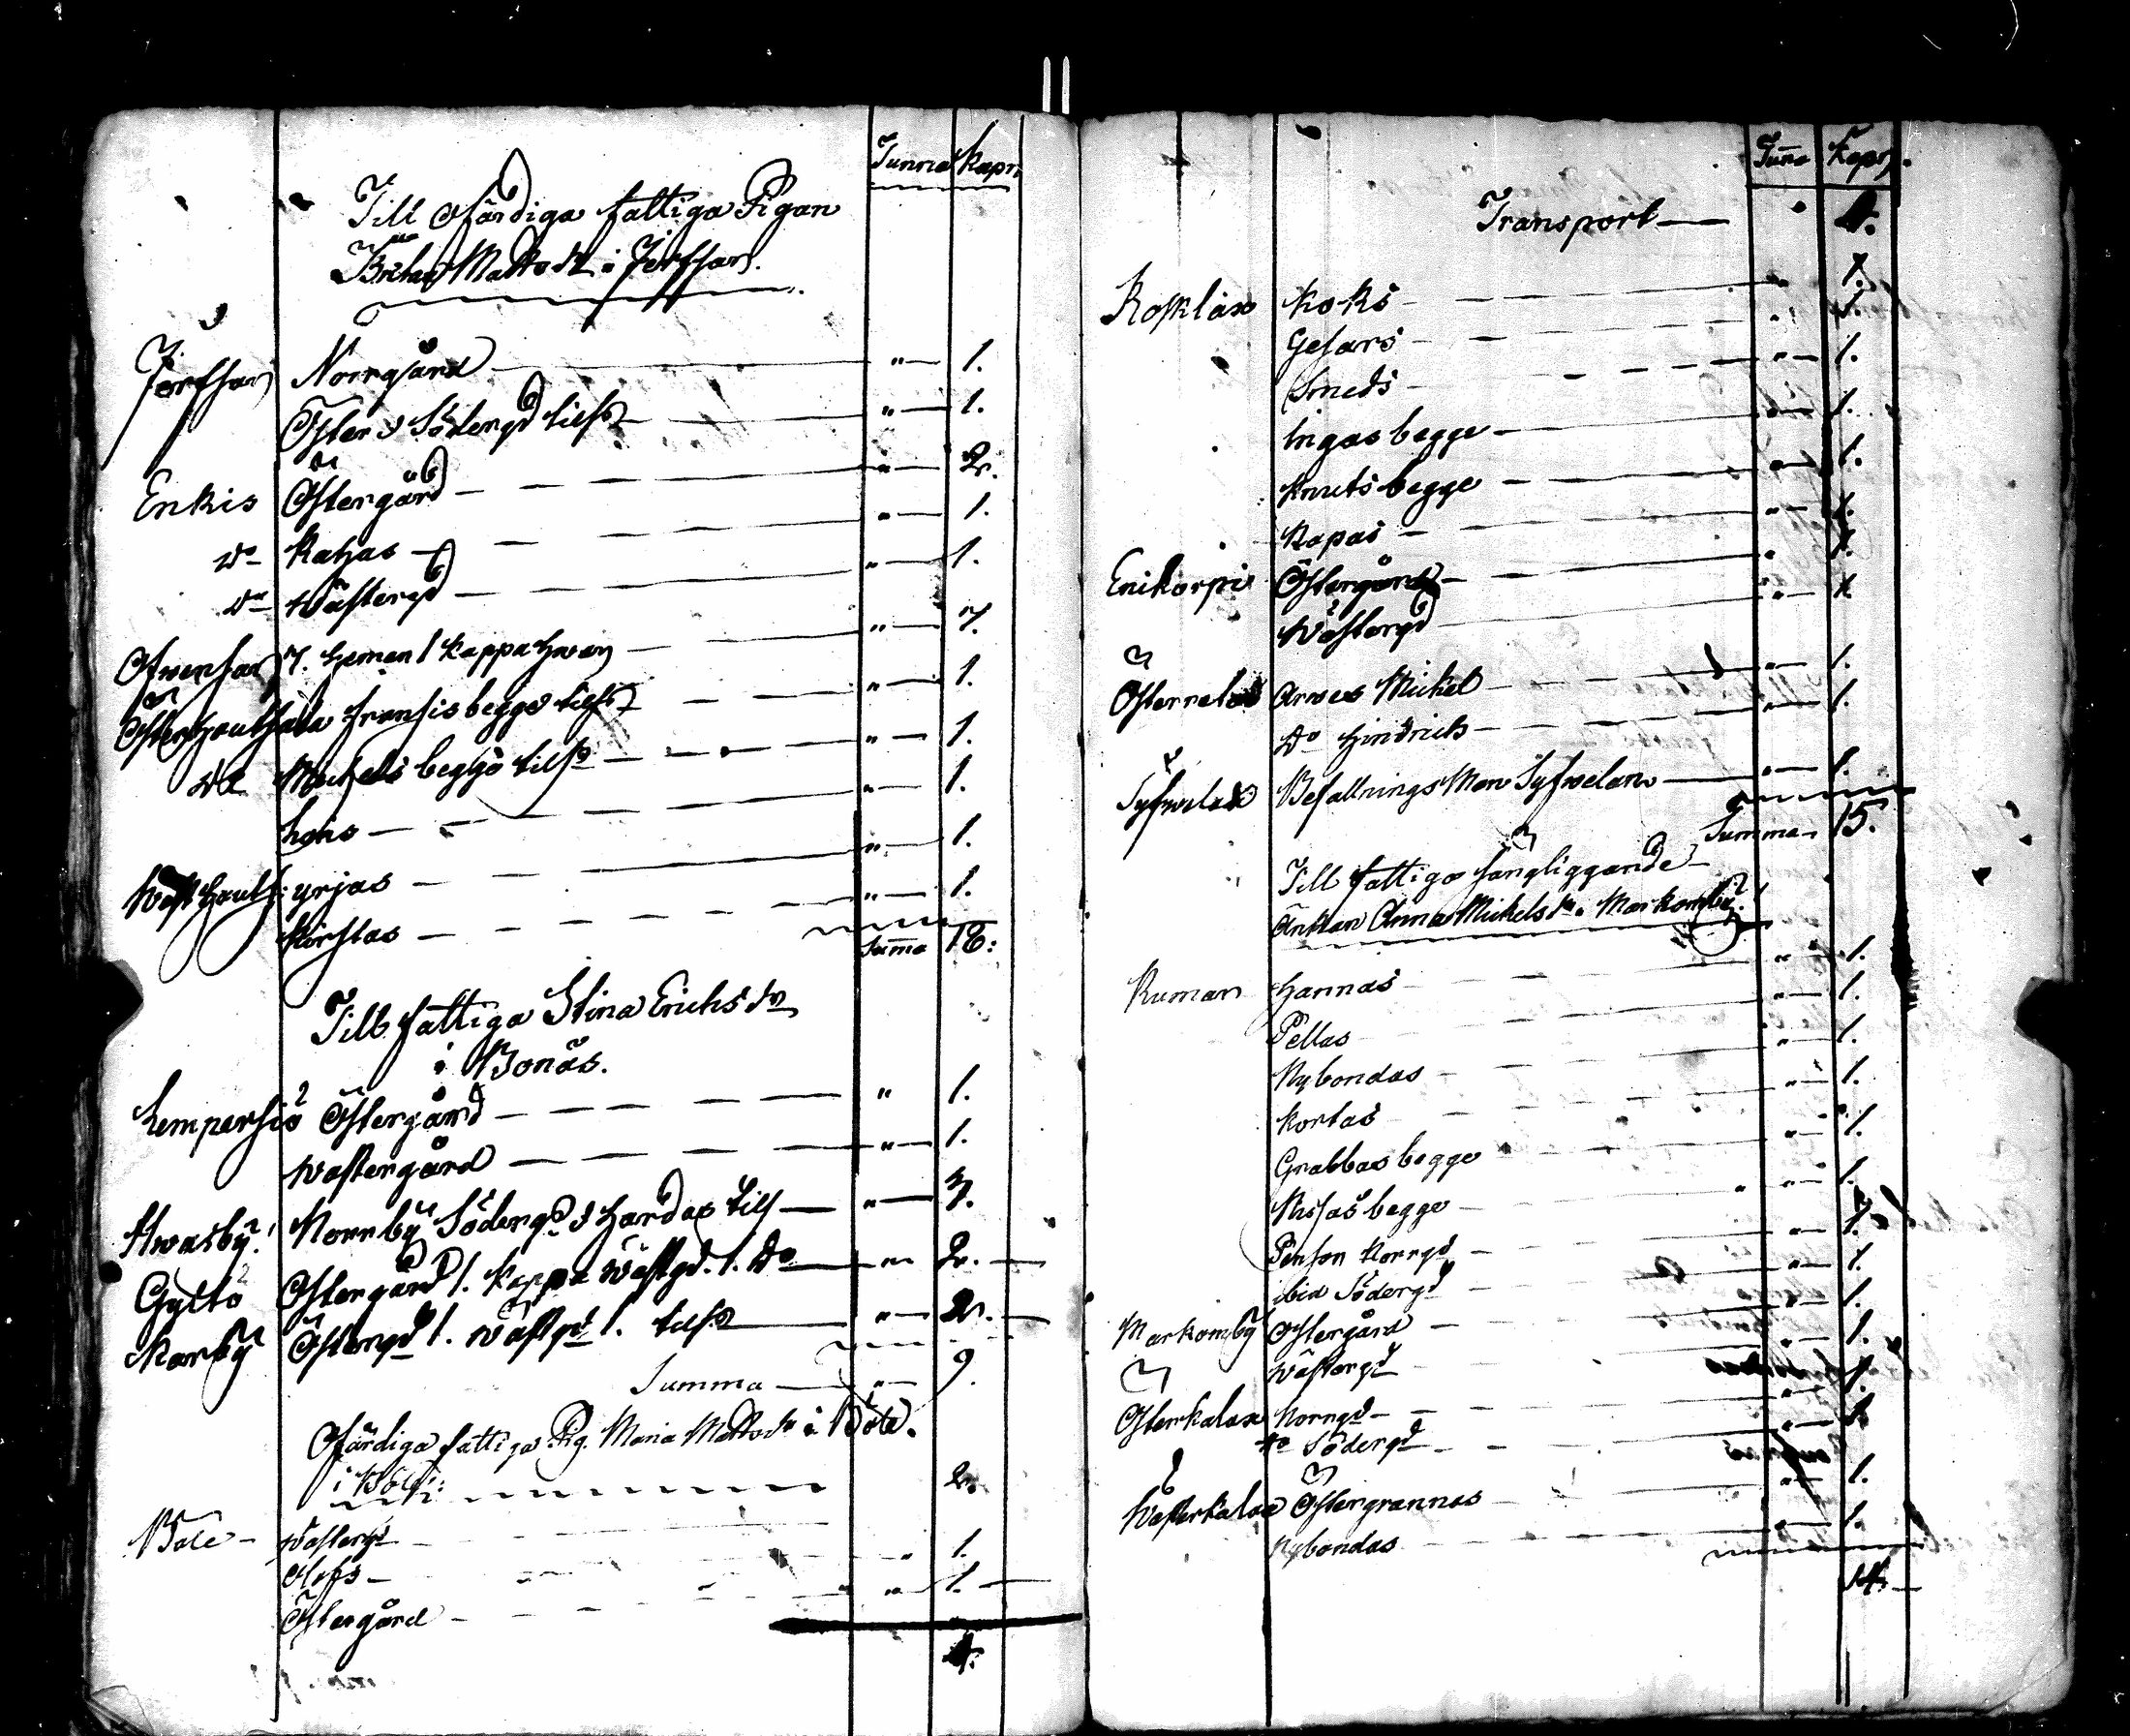 Tunna Kapr.
Till ofärdiga fattiga Pigan
Brita Mattsdr i Jerfsar.
Jerfsar Norrgård " 1.
Öster & Södergd tills " 1.
Enkis Östergård " 2.
Do Kahas " 1.
Do Wästergd " 1.
Ofwersar 7. Heman 1 Kappa hwar " 7.
Österhoutsala Fransis begge tills " 1.
Do Michels begge tills " 1.
" 1.
Wästhouts: yrjas " 1.
Kirstas " 1.
Summa 18:
Till fattiga Stina Erichsdr
i Bonäs.
Lempersiö Östergård " 1.
Wästergård " 1.
Norrby Södergd & Hardas tills " 3.
Gyltö Östergård 1. Kappa Wästgd. 1. Do " 2.
Karby Östergd 1. Wästgd 1. tills " 2.
Summa " 9.
Ofärdiga fattiga Pig. Maria Mattsdr i Böle.
i Böle:
Böle Wästergd 2.
Olofs " 1.
Östergård " 1.
4.
Tuna Kapr.
Transport 4.
Rosklax Koks " 1.
Gesars " 1.
Smeds " 1.
Ingas begge " 1.
Knuts begge " 1.
Kapas " 1.
Enikorpi Östergård " 1.
Wästergd " 1
Österretas Arwes Mickel " 1.
Do Hindrich " 1.
Syfwelax BefallningsMan Syfwelan " 1.
Summa 15.
Till fattiga sängliggande
Änkan Anna Michelsdr i Markomby.
Ruman Hannas " 1.
Pellas " 1.
Nybondas " 1.
Kortas " 1.
Grabbas begge " 1.
Nisas begge " 1.
Penson Norrgd " 1.
ibid Södergd " 1.
Markomby Östergård " 1.
Wästergd " 1.
Österkalax Norrgd " 1.
Do Södergd " 1.
Wästerkalax Östergrannas " 1.
Nybondas " 1.
14.